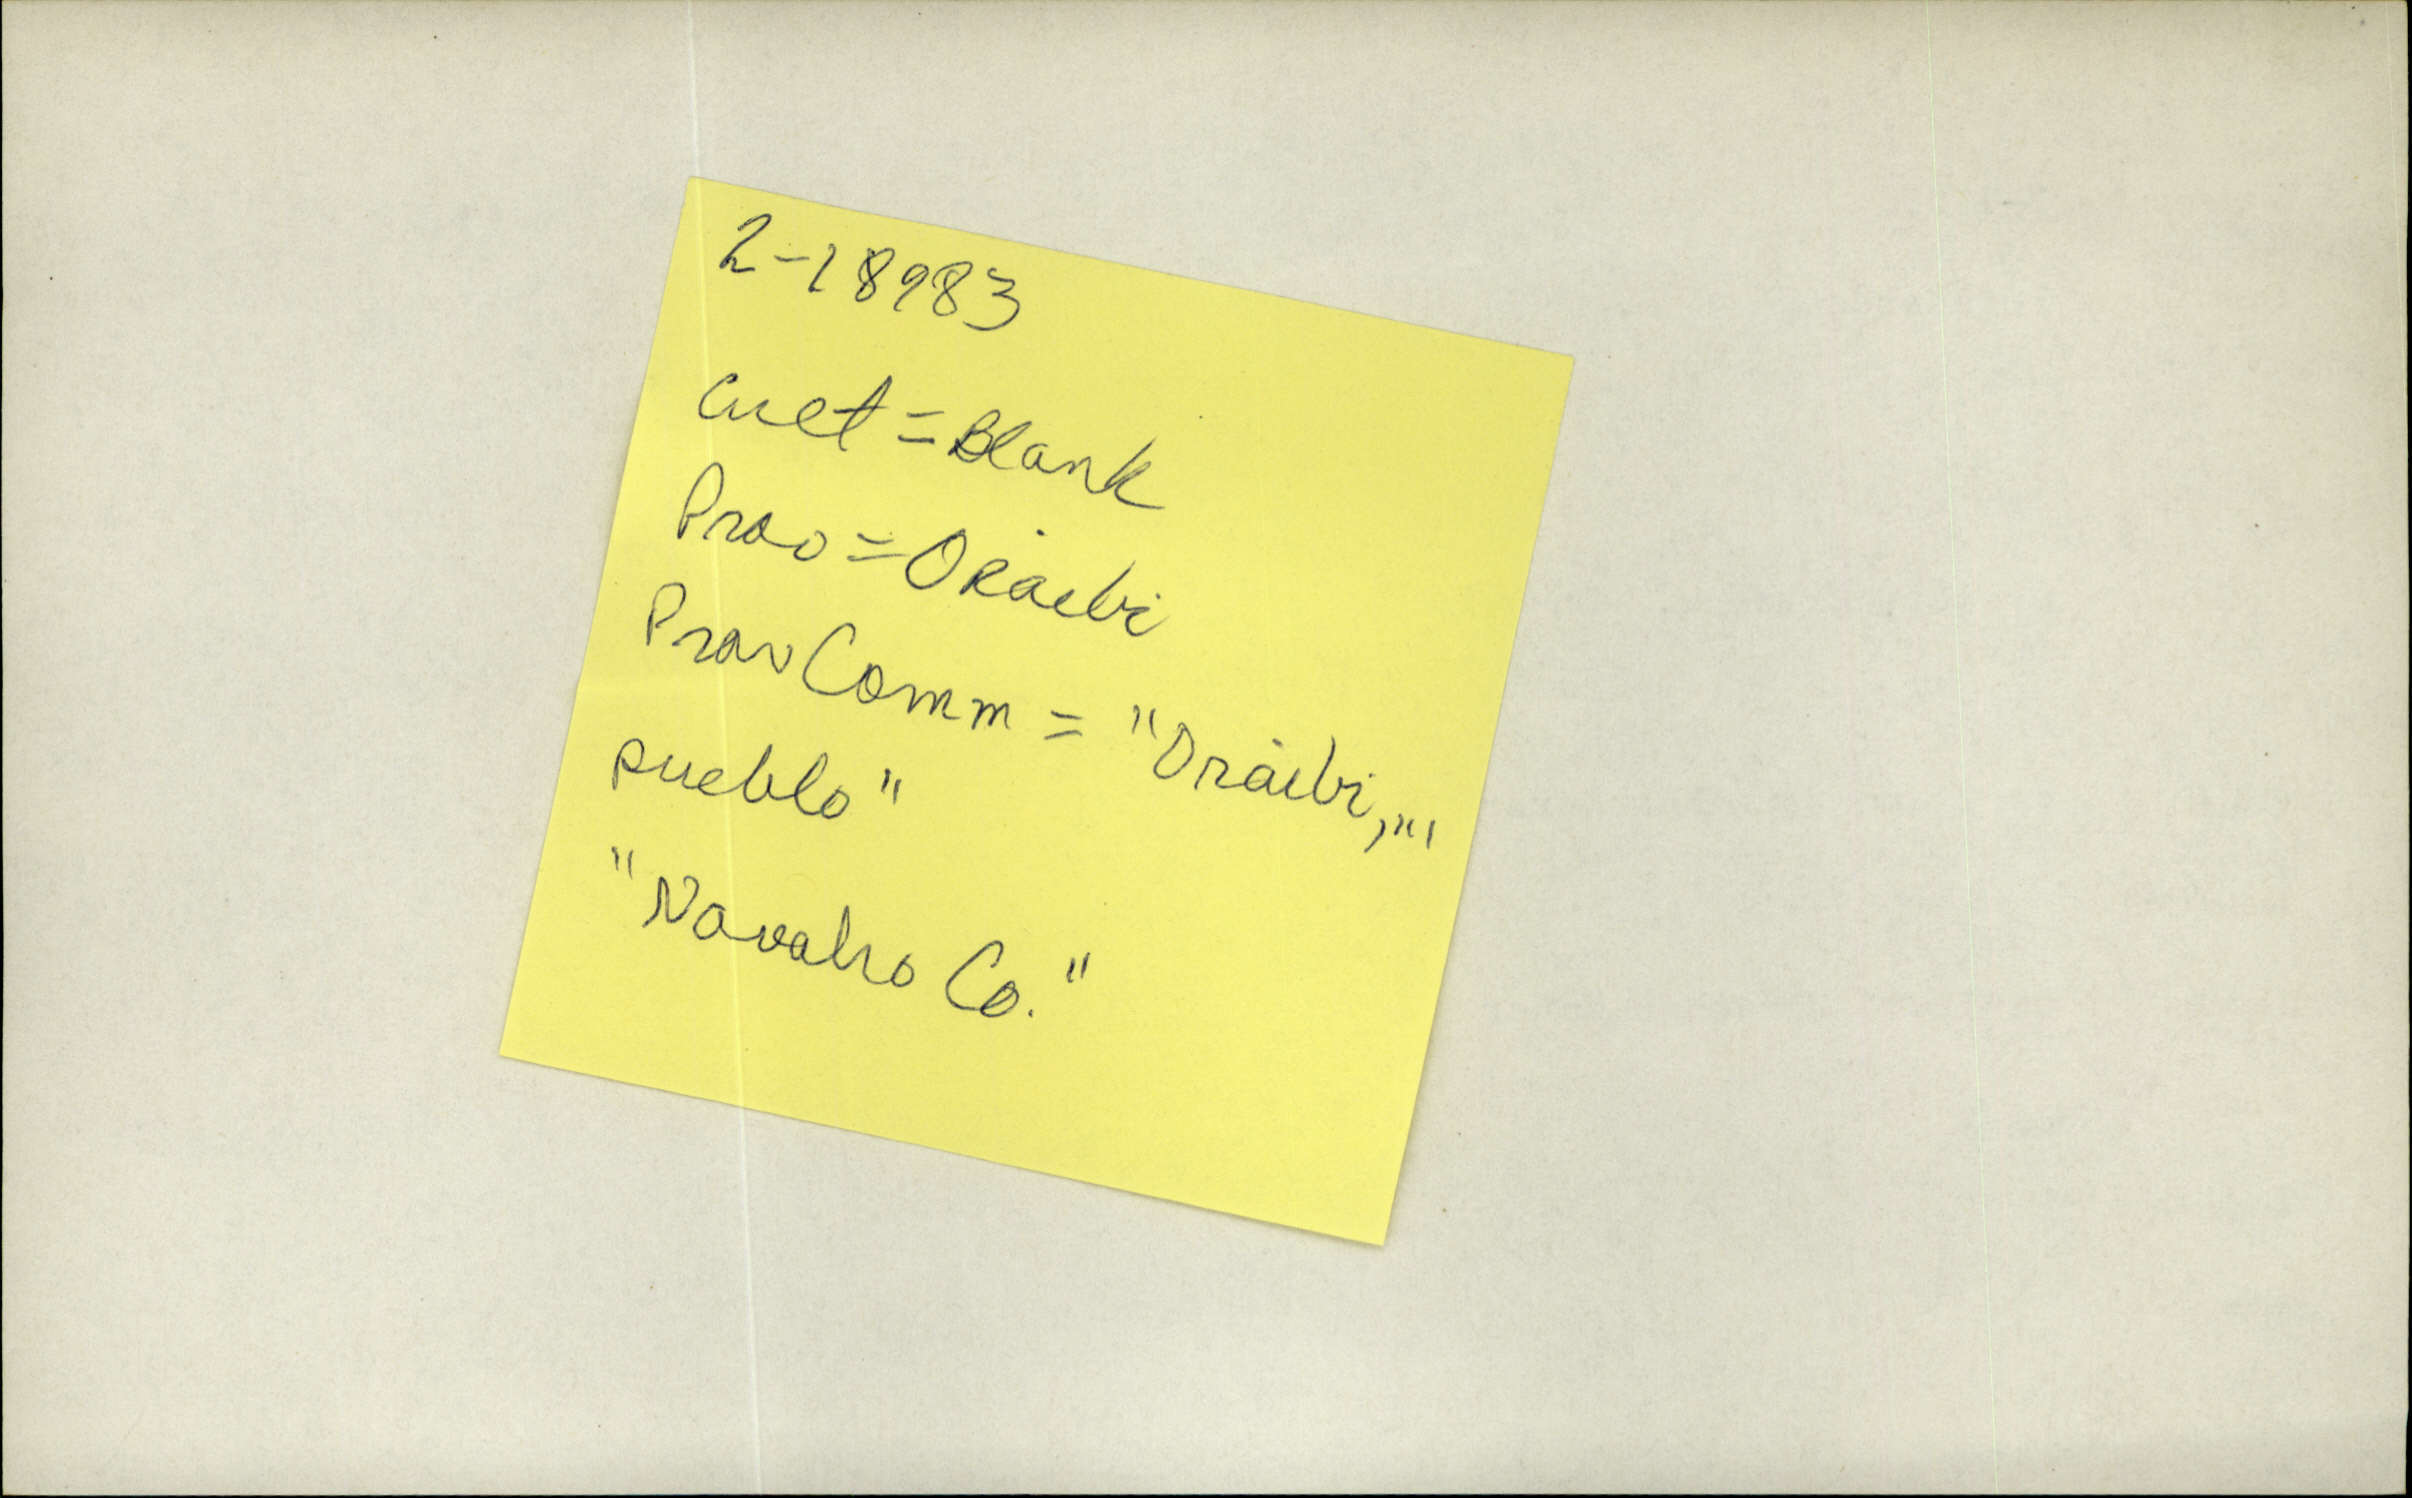 2-18983
Cult=Blank
Prov=Oraibi
ProvComm = "Oraibi,"
pueblo"
"Navaho Co."